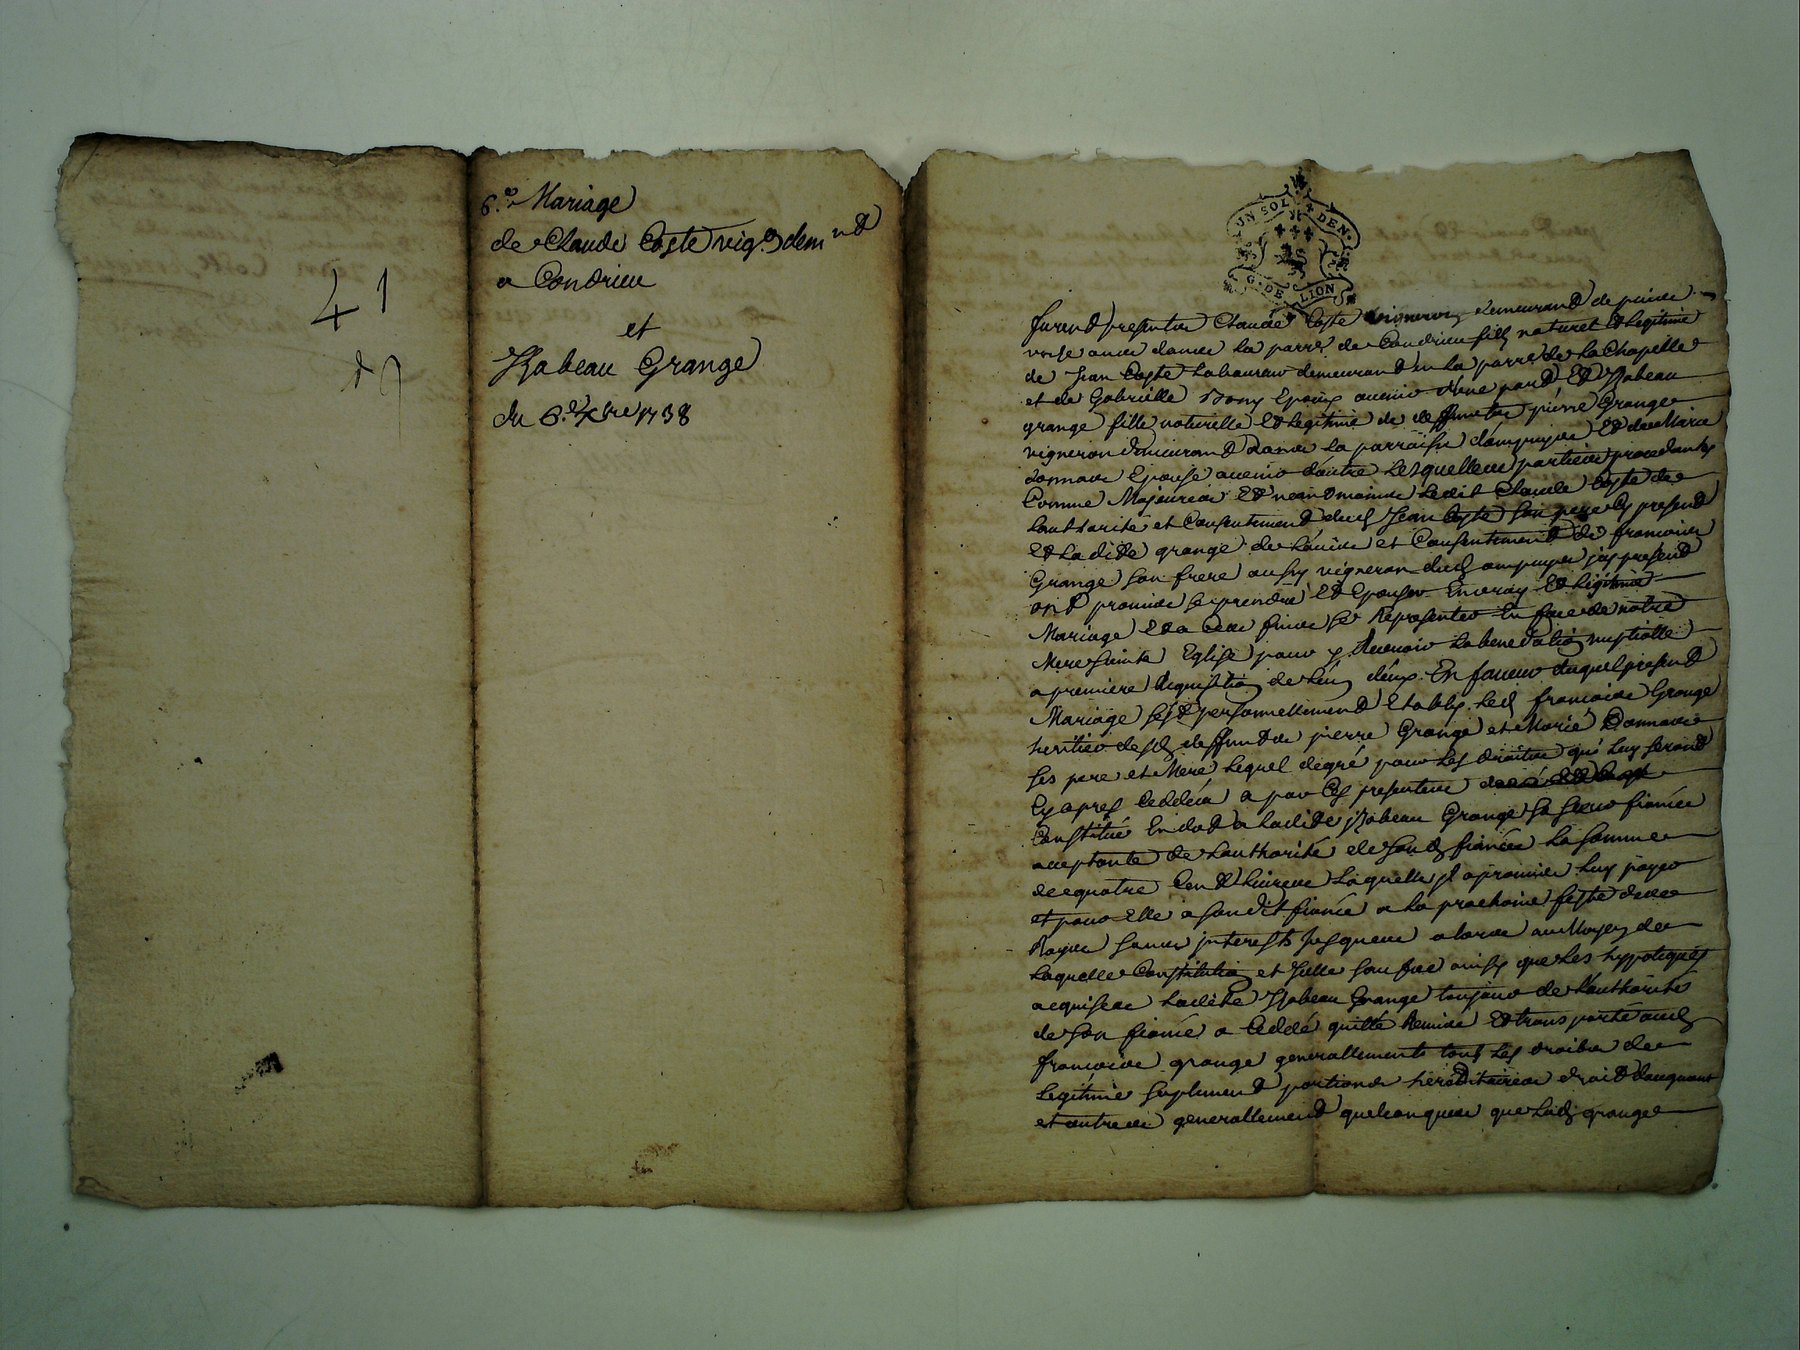 41
6.e Mariage
de Claude Coste vig.on dem nd
a Condrieu
et
Izabeau Grange
du 6.e Xbre 1738
UN SOL DEN.
G. DE LION
furend presentes Claude Coste vigneron demeurand depuis
onse ans dans la parre de Condrieu fils naturel Et legitime
de Jean Coste laboureur demeurand en la parre de la Chapelle
et de Gabrielle Epoux avenir d'une pard Et Izabeau
grange fille naturelle Et legitime de deffuncts pierre Grange
vigneron demeurand dans la parroisse dampuyes Et de Marie
donnave Epouse avenir d'autre Lesquelles parties procedantes
Comme Majeures Et neandmoins ledit Claude Coste de
Lauthorité et Consentement dud Jean Coste son pere Cy presend
Et la ditte grange de L'avis et Consentement de francois
Grange son frere aussy vigneron dud ampuyes jcy presend
ont promis se prendre Et Epouser En vray Et legitime
Mariage Et a ces fins se Representer En face de nôtre
Mere Sainte Eglise pour y Recevoir la benediction nuptialle
a premiere Requisition de Lun deux En faveur duquel presend
Mariage sest personnellement Etably led francois Grange
heritier desd deffunts pierre Grange et Marie Donnave
ses pere et Mere lequel degré pour les droits qui luy serond
Cy apres Ceddés a par Ces presentes
Constitué En dot a ladite Jzabeau Grange sa soeur fiancée
acceptante de Lauthorité de son d fiancé la somme
de quatre Cend Livres Laquelle jl a promis luy payer
et pour Elle a son dit fiancé a la prochaine feste des
Rayes sans jnterests jusques alors au Moyen de
laquelle Constitution et sur ainsy que les hypoteques
acquises ladite Jzabeau Grange toujours de lauthorité
de son fiancé a Ceddé quitté Remis Et transporté aud
francois grange generallement tous les droits de
Legitime suplement portions hereditaires droit daugment
et autres generallement quelconques que Lad grange